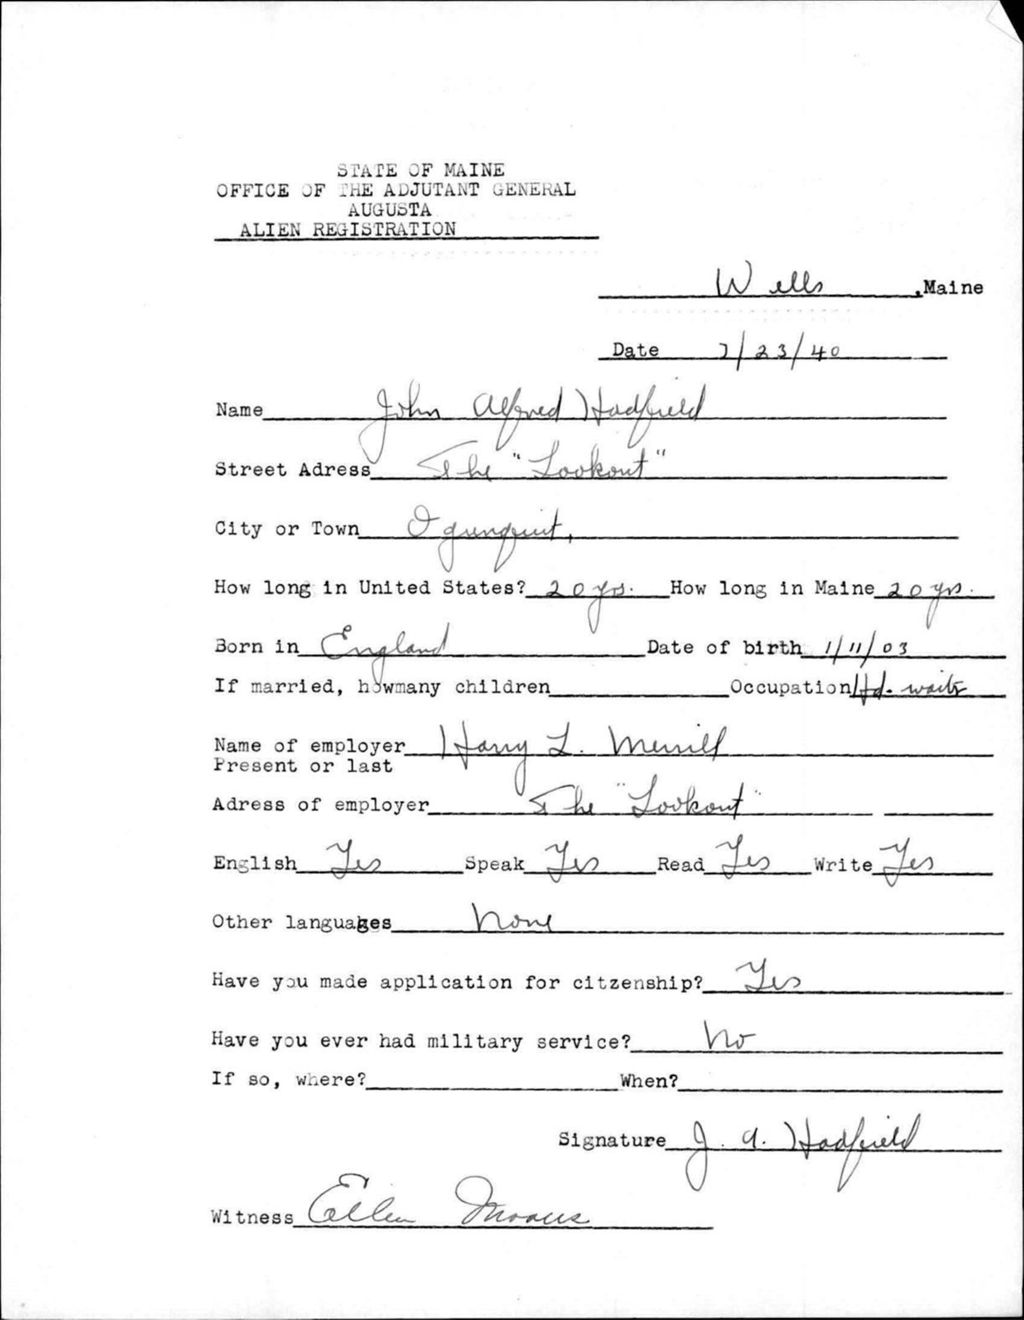 STATE OF MAINE
OFFICE OF THE ADJUTANT GENERAL
AUGUSTA
ALIEN REGISTRATION
Wells, Maine
Date 7/23/40
Name John Alfred Hadfield
Street Adress The "Lookout"
City or Town Ogunquit,
How long in United States? 20 yrs. How long in Maine 20 yrs.
Born in England Date of birth 1/11/03
If married, howmany children Occupation Hd. waitr
Name of employer Harry L. Merrill
Present or last
Adress of employer The "Lookout"
English Yes Speak Yes Read Yes Write Yes
Other languages None
Have you made application for citzenship? Yes
Have you ever had military service? No
If so, where? When?
Signature J. A. Hadfield
Witness Ellen